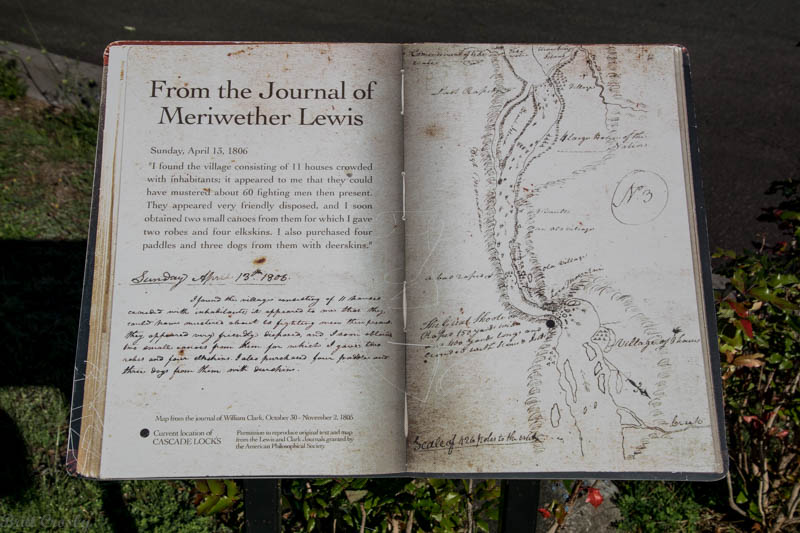 From the Journal of
Meriwether Lewis
Sunday, April 13, 1806
"I found the village consisting of 11 houses crowded
with inhabitants; it appeared to me that they could
have mustered about 60 fighting men then present.
They appeared very friendly disposed, and I soon
obtained two small canoes from them for which I gave
two robes and four elkskins. I also purchased four
paddles and three dogs from them with deerskins."
Sunday April 13th 1806.
I found the village consisting of 11 houses
crowded with inhabitants; it appeared to me that they
could have mustered about 60 fighting men then present
they appeared very friendly disposed, and I soon obtained
two small canoes from them for which I gave two
robes and four elkskins. I also purchased four paddles and
three dogs from them with deerskins.
Map from the journal of William Clark, October 30 - November 2, 1805
Current location of
CASCADE LOCKS
Permission to reproduce original text and map
from the Lewis and Clark Journals granted by
the American Philosophical Society
Last Rapid
Village
a large of the
Nations
No 3
old village
a bad rapid
The Great Shoote
Rapid 150 yards wide
400 yards long and
Village of
Creek
Scale of 426 Poles to the inch